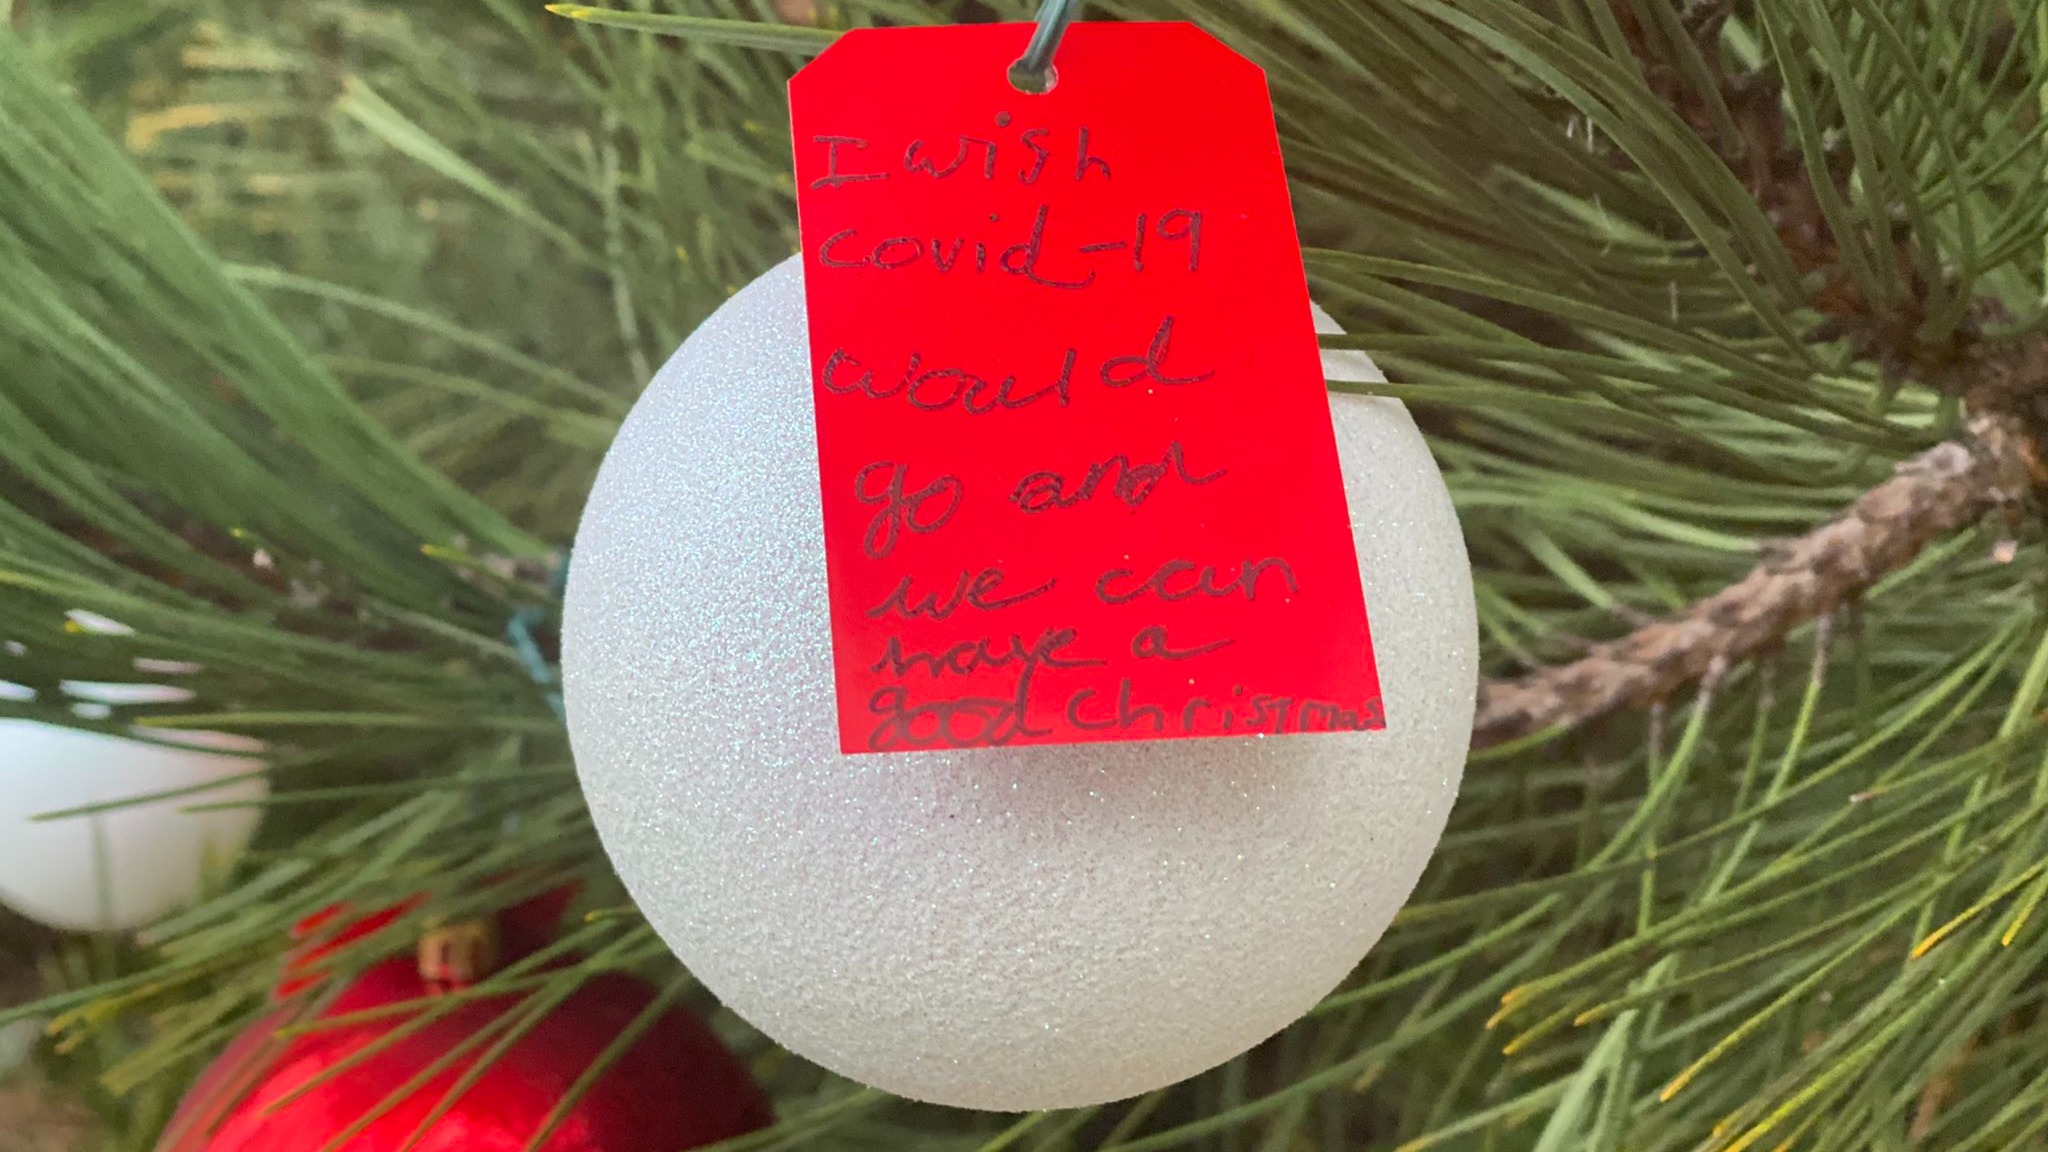 I wish
covid-19
would
go and
we can
have a
good christmas